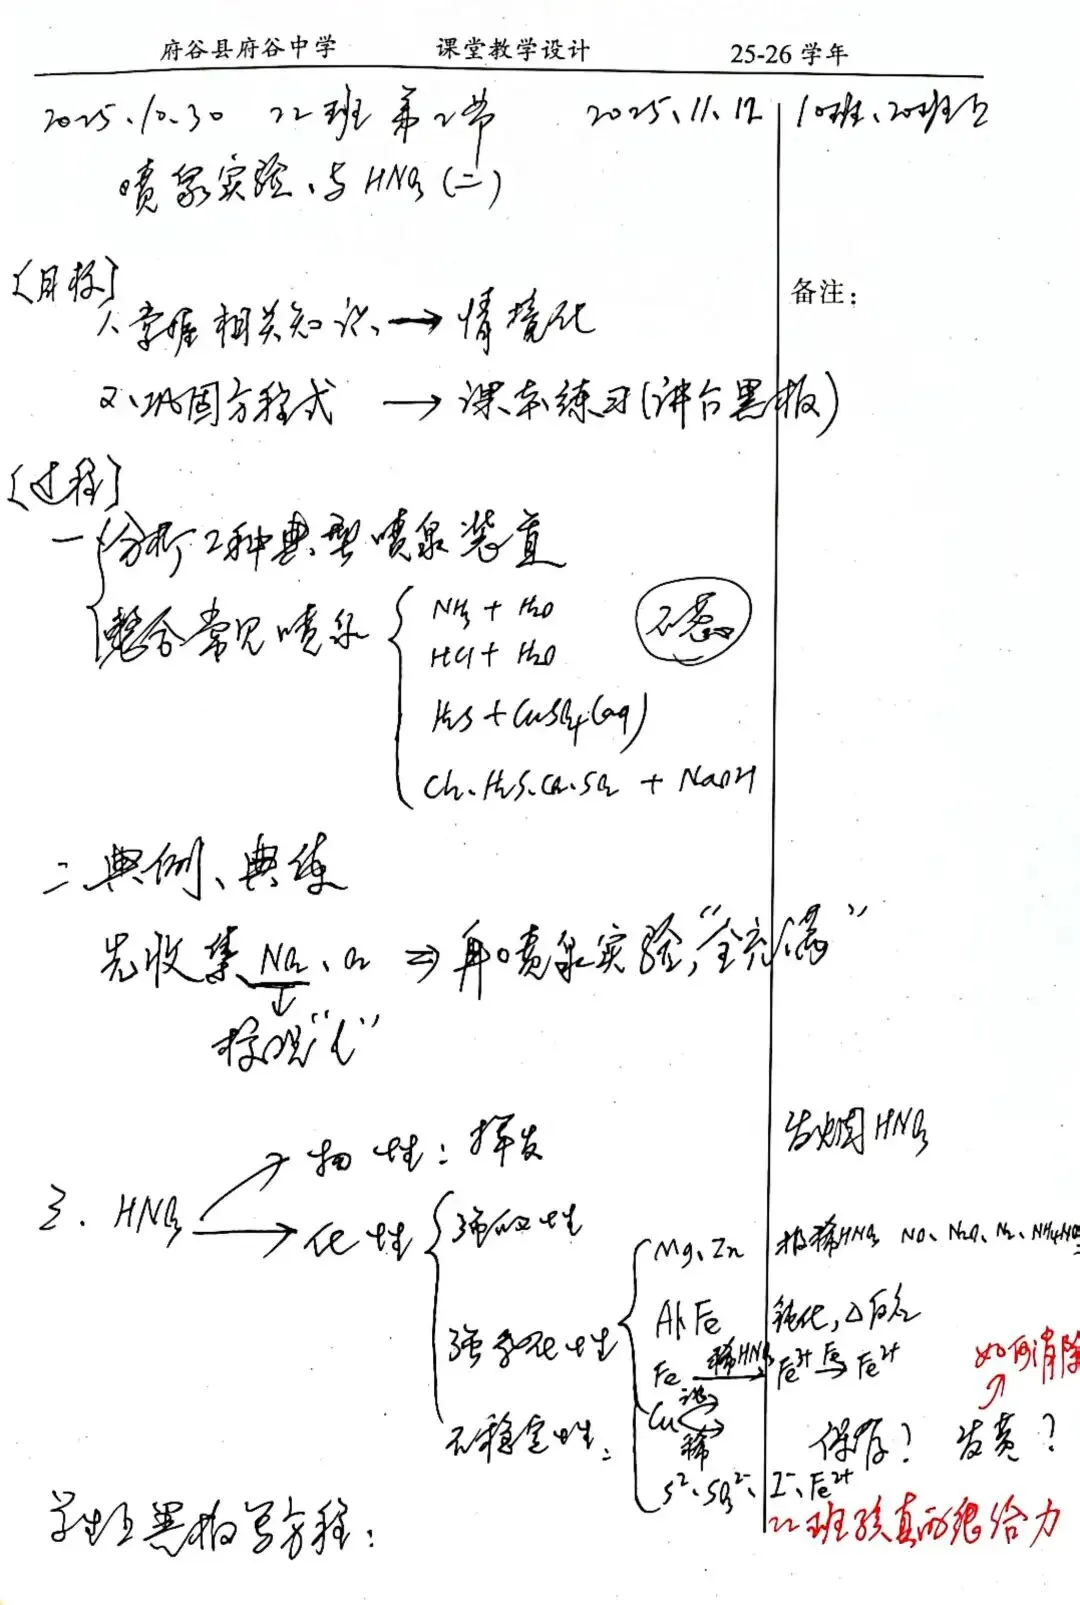 府谷县府谷中学 课堂教学设计 25-26 学年
2025.10.30 22班 第2节 2025.11.12 10班、20班
喷泉实验、与HNO3(二)
[目标]
备注:
1、掌握相关知识、→ 情境化
2、巩固方程式 → 课本练习(讲台黑板)
[过程]
一 分析2种典型喷泉装置
整合常见喷泉
NH3 + H2O
HCl + H2O
H2S + CuSO4(aq)
Cl2、H2S、CO2、SO2 + NaOH
二 典例、典练
先收集 NO2、O2 ⇒ 再喷泉实验,"全充满"
发烟HNO3
三. HNO3
物性: 挥发
化性
强酸性
强氧化性
不稳定性:
Mg、Zn 极稀HNO3 NO、N2O、N2、NH4NO3
Al、Fe 钝化,△反应
Fe 稀HNO3→ Fe3+ Fe→ Fe2+
如何消除
Cu 浓 稀
保存? 发黄?
S2-、SO32-、I-、Fe2+
22班孩真的很给力
学生上黑板写方程: